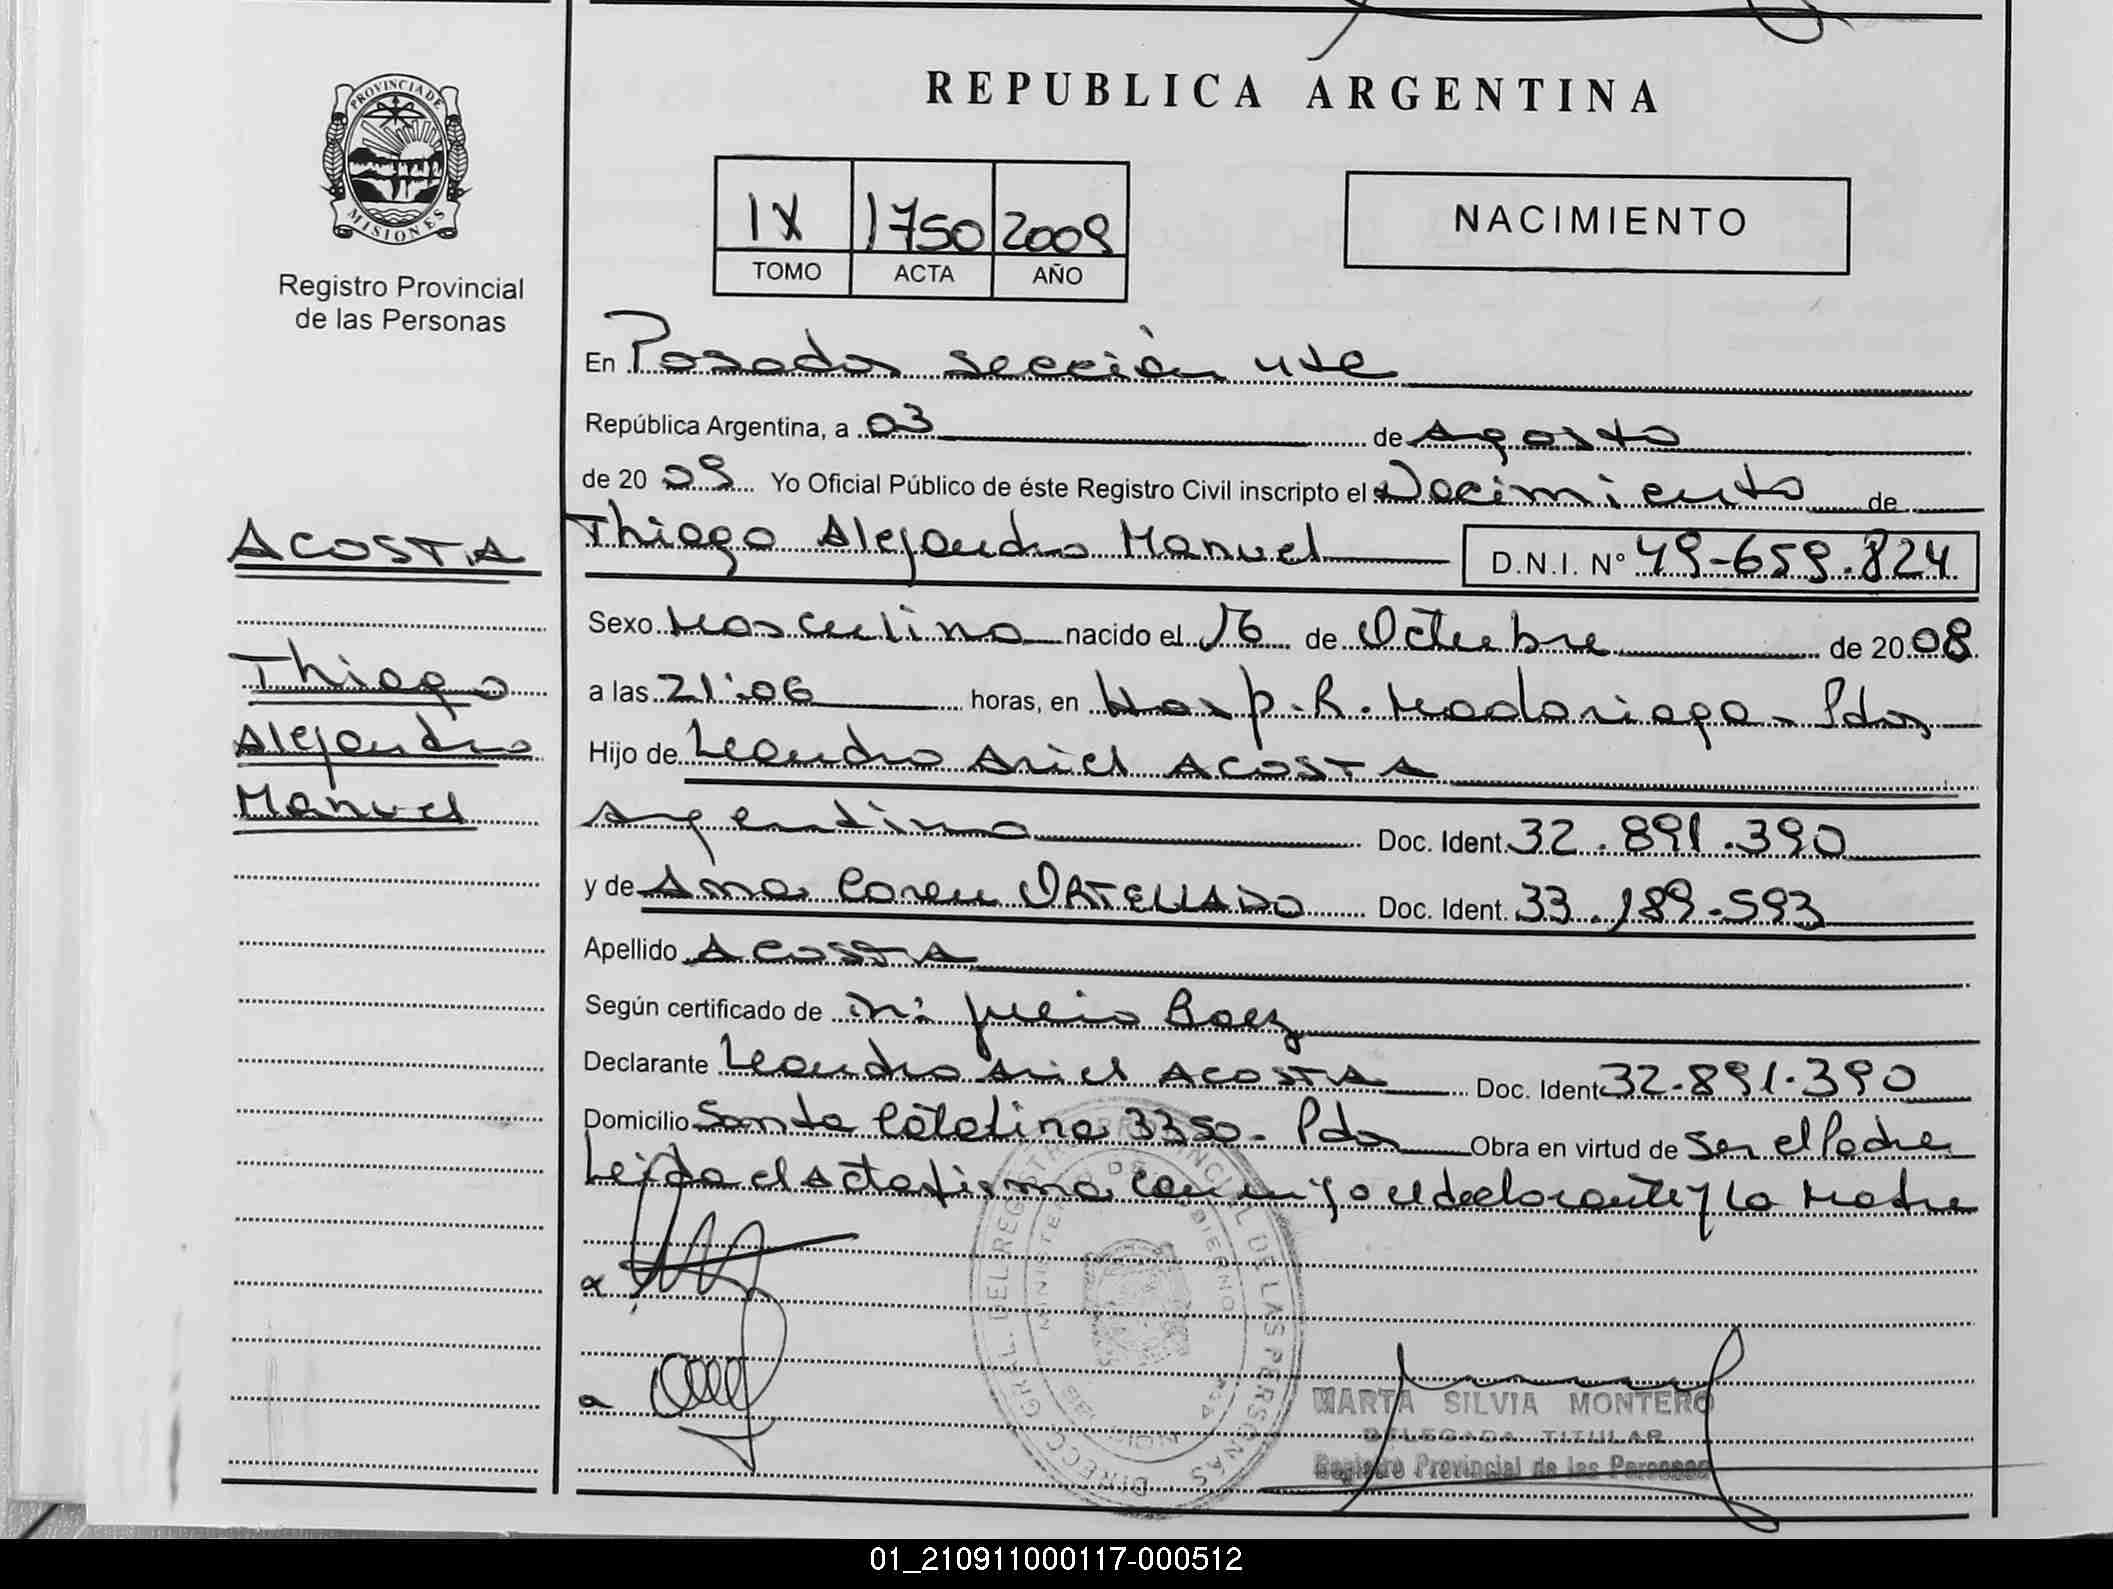 REPUBLICA ARGENTINA
PROVINCIA DE
MISIONES
Registro Provincial
de las Personas
IX 1750 2009
TOMO ACTA AÑO
NACIMIENTO
En Posadas sección
República Argentina, a 03 de Agosto
de 2009 Yo Oficial Público de éste Registro Civil inscripto el Nacimiento de
ACOSTA
Thiago
Alejandro
Manuel
Thiago Alejandro Manuel D.N.I. Nº 49-659.824
Sexo Masculino nacido el 16 de Octubre de 2008
a las 21:06 horas, en Hosp. R. Madariaga - Pdas
Hijo de Leandro Ariel ACOSTA
Argentino Doc. Ident. 32.891.390
y de Ana Coren ORTELLADO Doc. Ident. 33.189.593
Apellido ACOSTA
Según certificado de Julio Baez
Declarante Leandro Ariel ACOSTA Doc. Ident 32.891.390
Domicilio Santa Catalina 3350 - Pdas Obra en virtud de Ser el Padre
Leida el acta firma conmigo el declarante y la Madre
DIRECC. GRAL. DEL REGISTRO PROVINCIAL DE LAS PERSONAS
MINISTERIO DE GOBIERNO
MARTA SILVIA MONTERO
DELEGADA TITULAR
Registro Provincial de las Personas
01_210911000117-000512